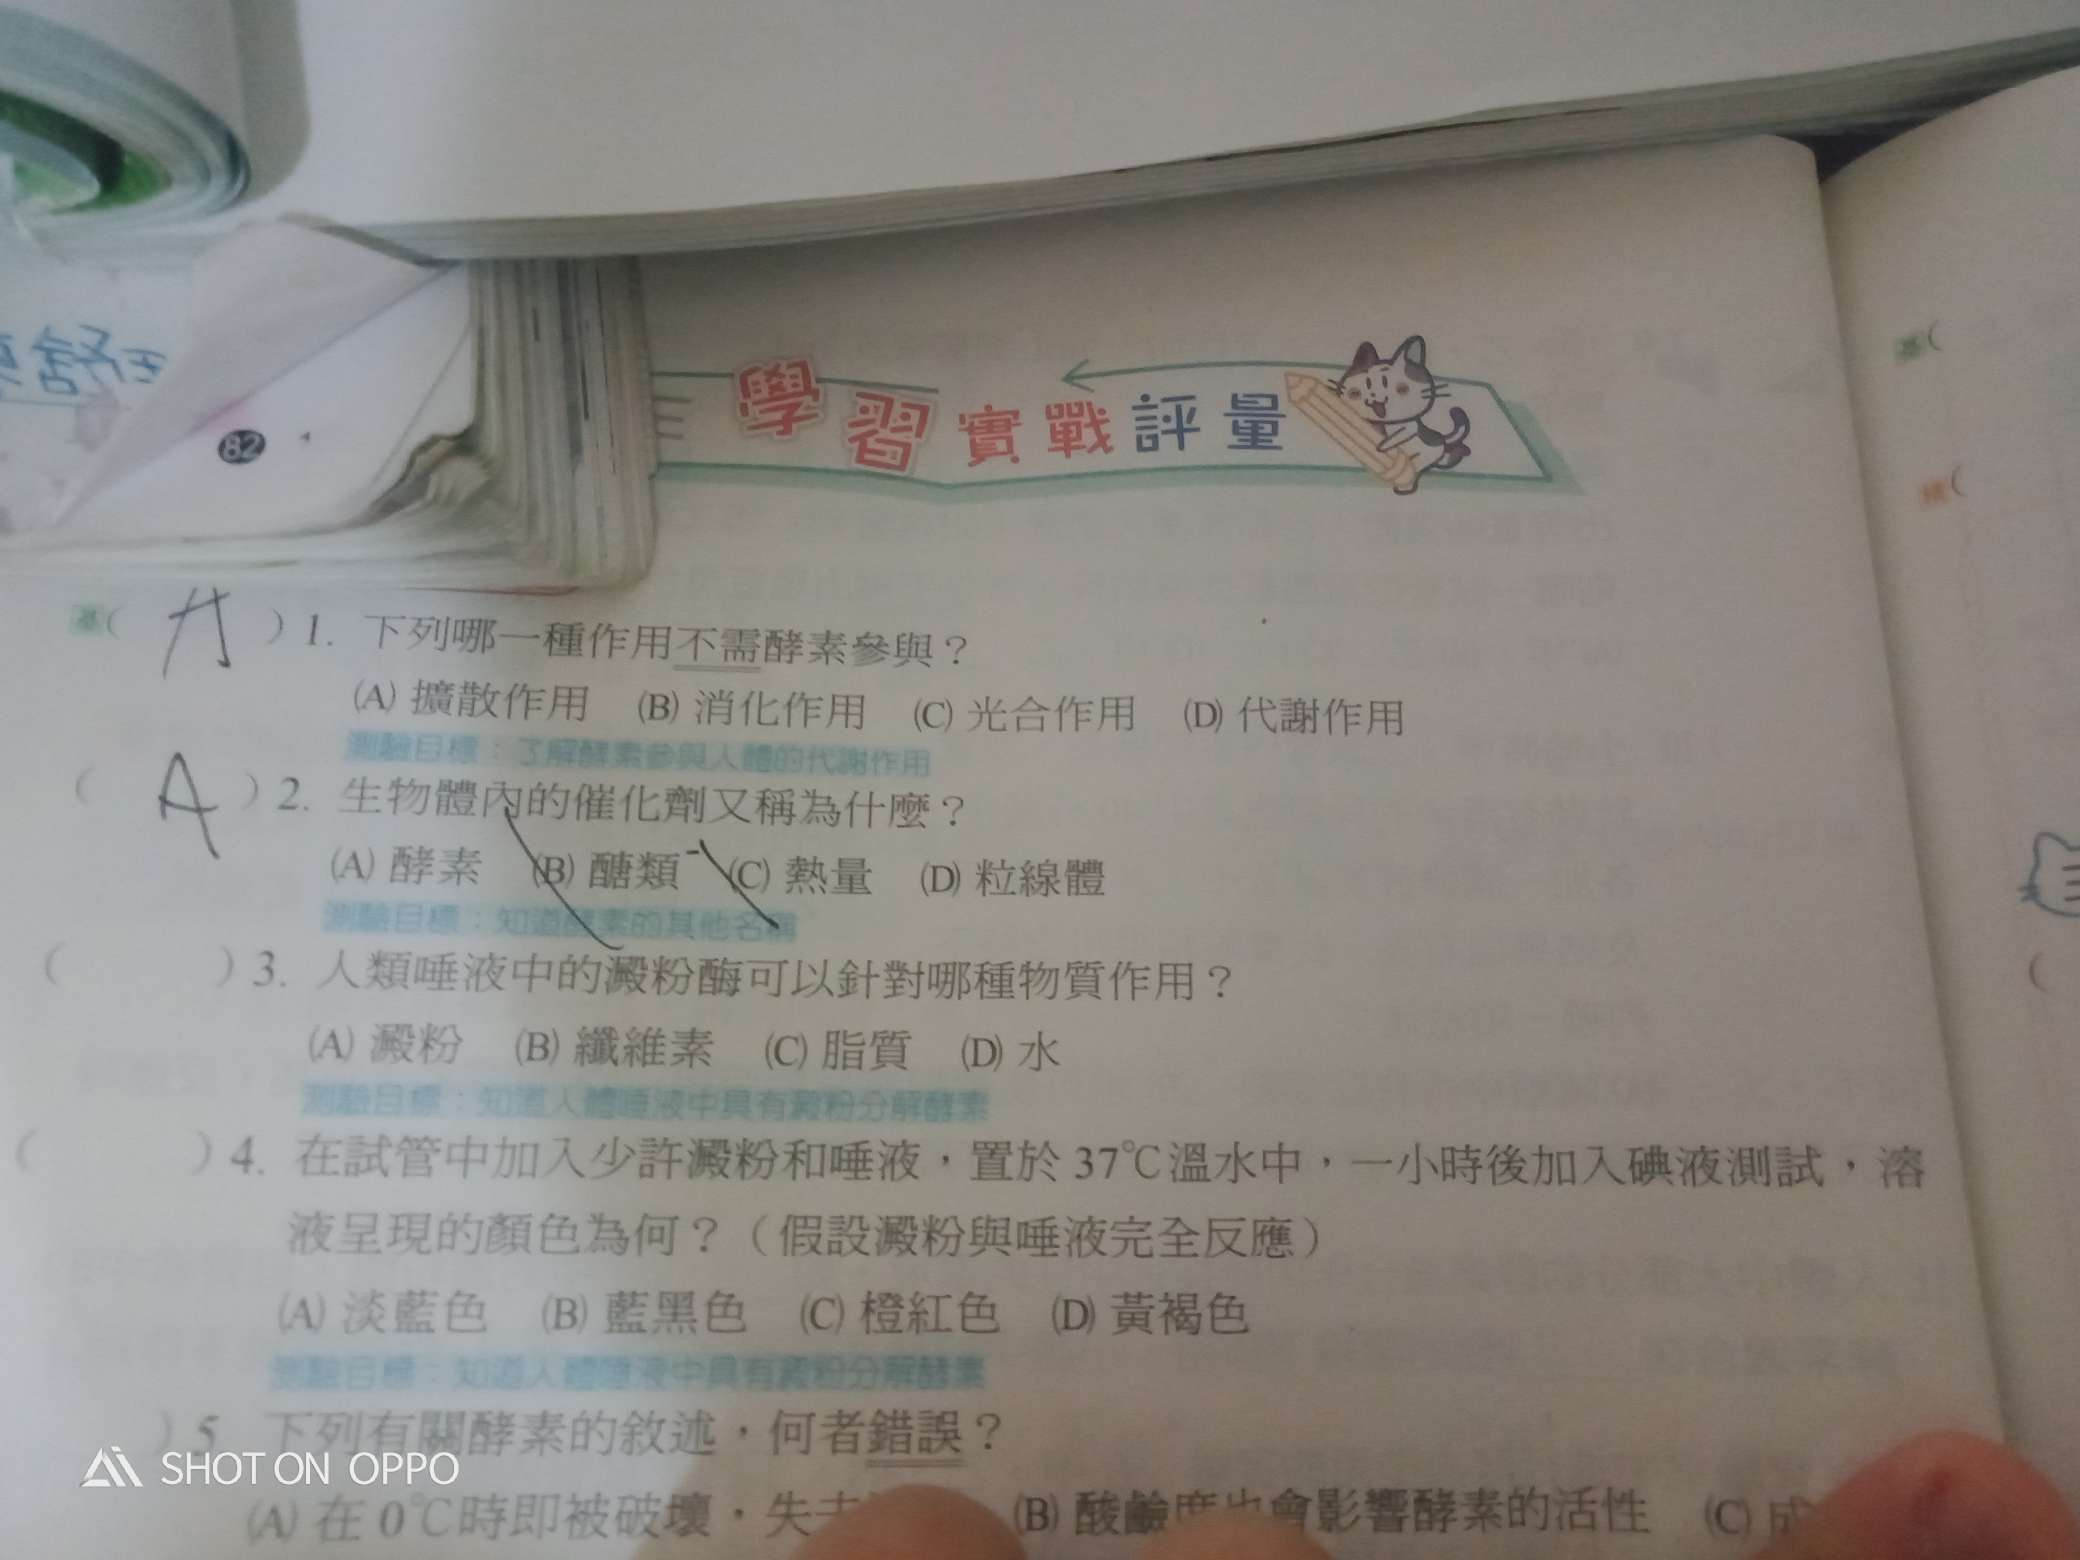 舒
82
學習實戰評量
基( A )1. 下列哪一種作用不需酵素參與？
(A) 擴散作用 (B) 消化作用 (C) 光合作用 (D) 代謝作用
測驗目標：了解酵素參與人體的代謝作用
( A )2. 生物體內的催化劑又稱為什麼？
(A) 酵素 (B) 醣類 (C) 熱量 (D) 粒線體
測驗目標：知道酵素的其他名稱
( )3. 人類唾液中的澱粉酶可以針對哪種物質作用？
(A) 澱粉 (B) 纖維素 (C) 脂質 (D) 水
測驗目標：知道人體唾液中具有澱粉分解酵素
( )4. 在試管中加入少許澱粉和唾液，置於 37℃溫水中，一小時後加入碘液測試，溶
液呈現的顏色為何？（假設澱粉與唾液完全反應）
(A) 淡藍色 (B) 藍黑色 (C) 橙紅色 (D) 黃褐色
測驗目標：知道人體唾液中具有澱粉分解酵素
)5. 下列有關酵素的敘述，何者錯誤？
(A) 在 0℃時即被破壞，失去 (B) 酸鹼度也會影響酵素的活性 (C)
SHOT ON OPPO